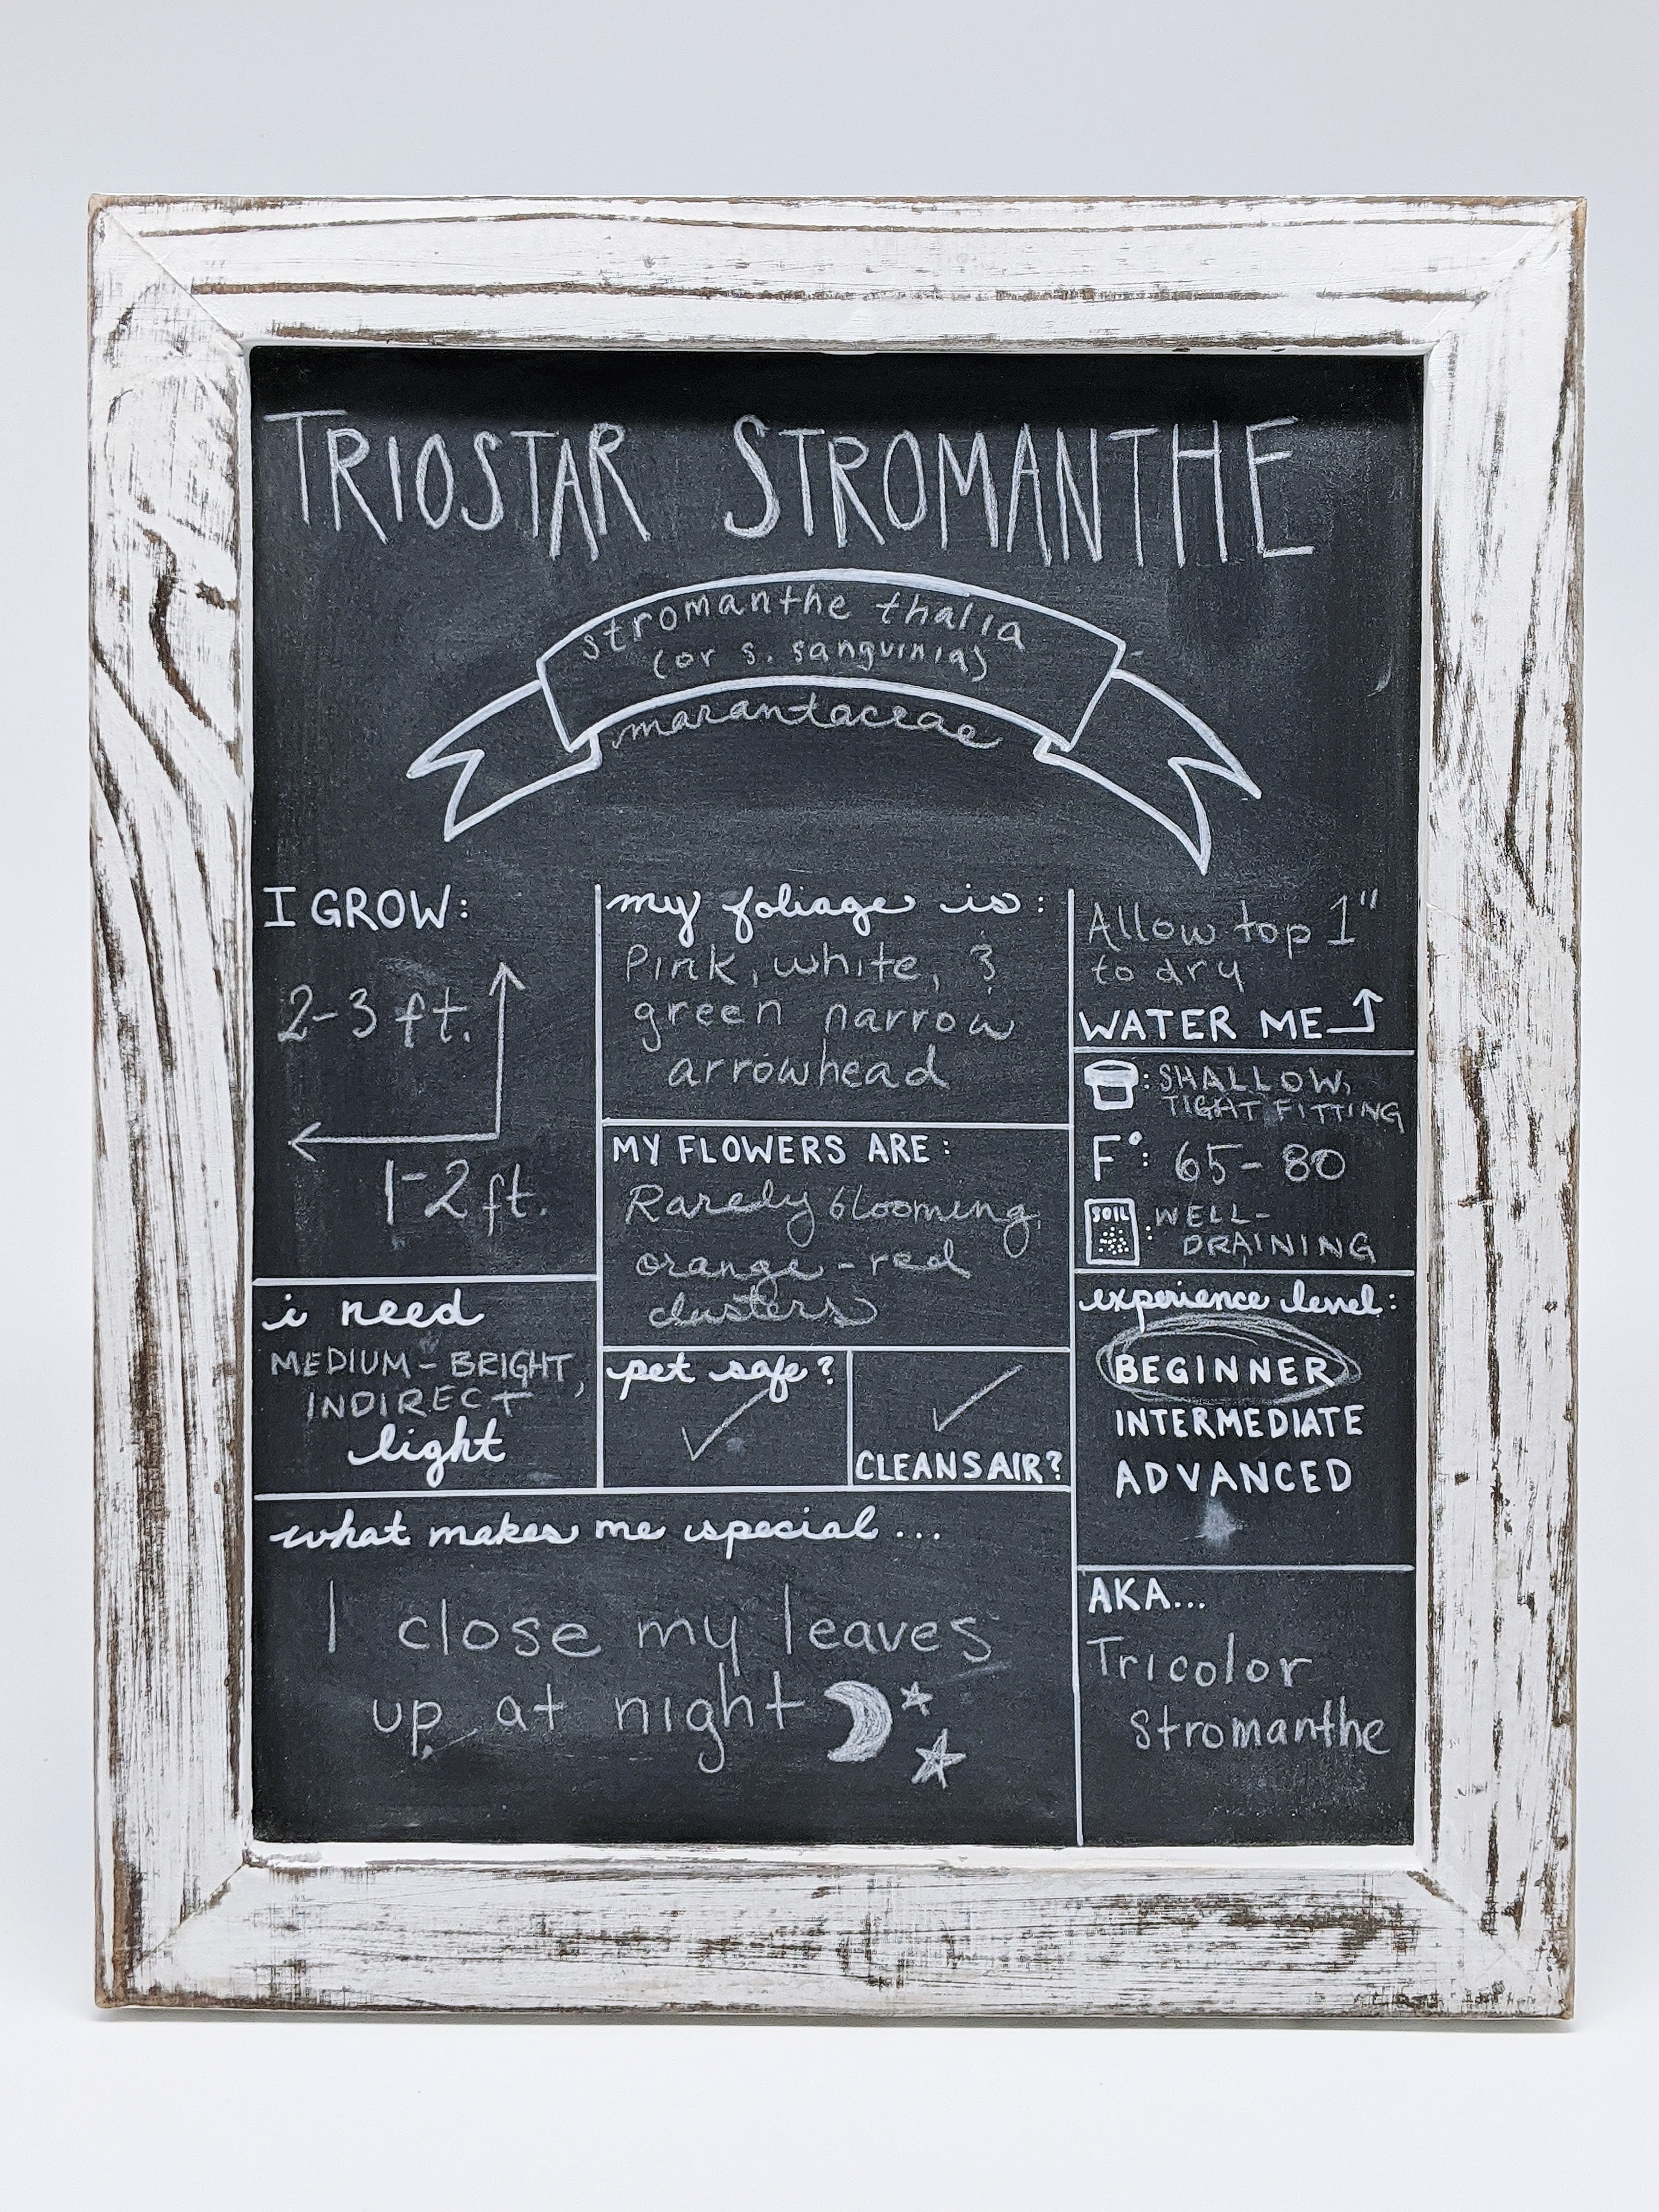 TRIOSTAR STROMANTHE
stromanthe thalia
(or s. sanguinia)
marantaceae
I GROW:
2-3 ft.
1-2 ft.
i need
MEDIUM - BRIGHT,
INDIRECT
light
my foliage is:
Pink, white, &
green narrow
arrowhead
MY FLOWERS ARE:
Rarely blooming,
orange-red
clusters
pet safe?
✓
✓
CLEANS AIR?
Allow top 1"
to dry
WATER ME
: SHALLOW,
TIGHT FITTING
F°: 65-80
SOIL : WELL-
DRAINING
experience level:
BEGINNER
INTERMEDIATE
ADVANCED
what makes me special...
I close my leaves
up at night
AKA...
Tricolor
Stromanthe